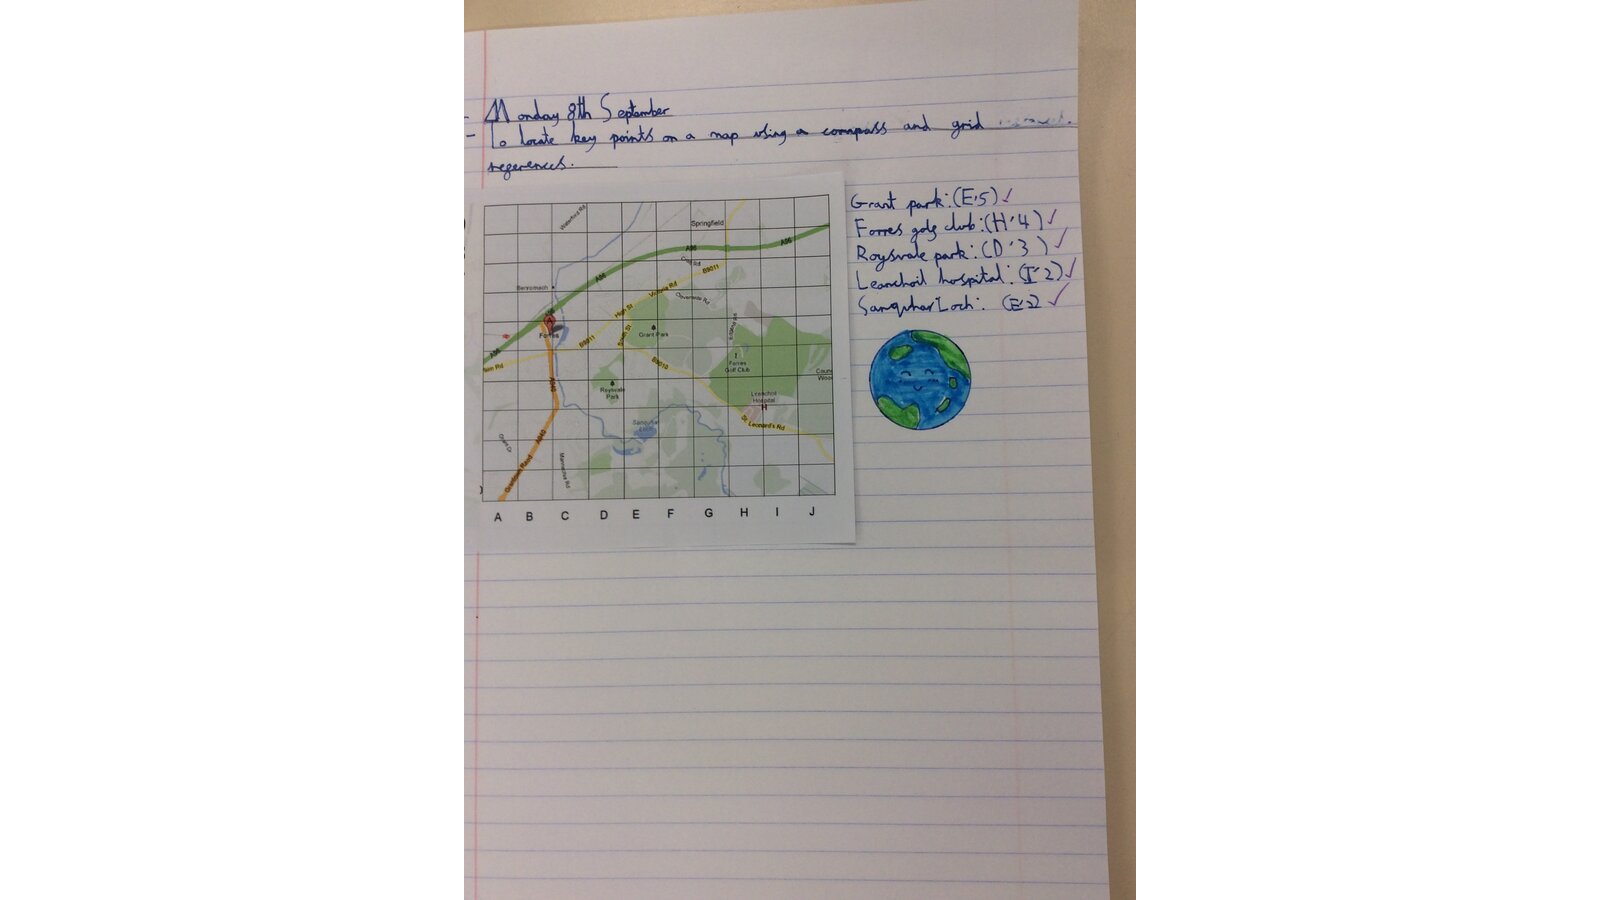 Monday 8th September
To locate key points on a map using a compass and grid
references.
Grant park: (E,5)
Forres golf club: (H,4)
Roysvale park: (D,3)
Leanchoil hospital: (I,2)
Sanquhar Loch: (E,2)
Waterford Rd
Springfield
A96
A96
A96
A96
B9011
Benromach
Victoria Rd
High St
Forres
Grant Park
South St
B9011
B9010
Forres
Golf Club
A940
Roysvale
Park
Leanchoil
Hospital
H
St. Leonard's Rd
Sanquhar
A940
Grantown Road
Mannachie Rd
A B C D E F G H I J